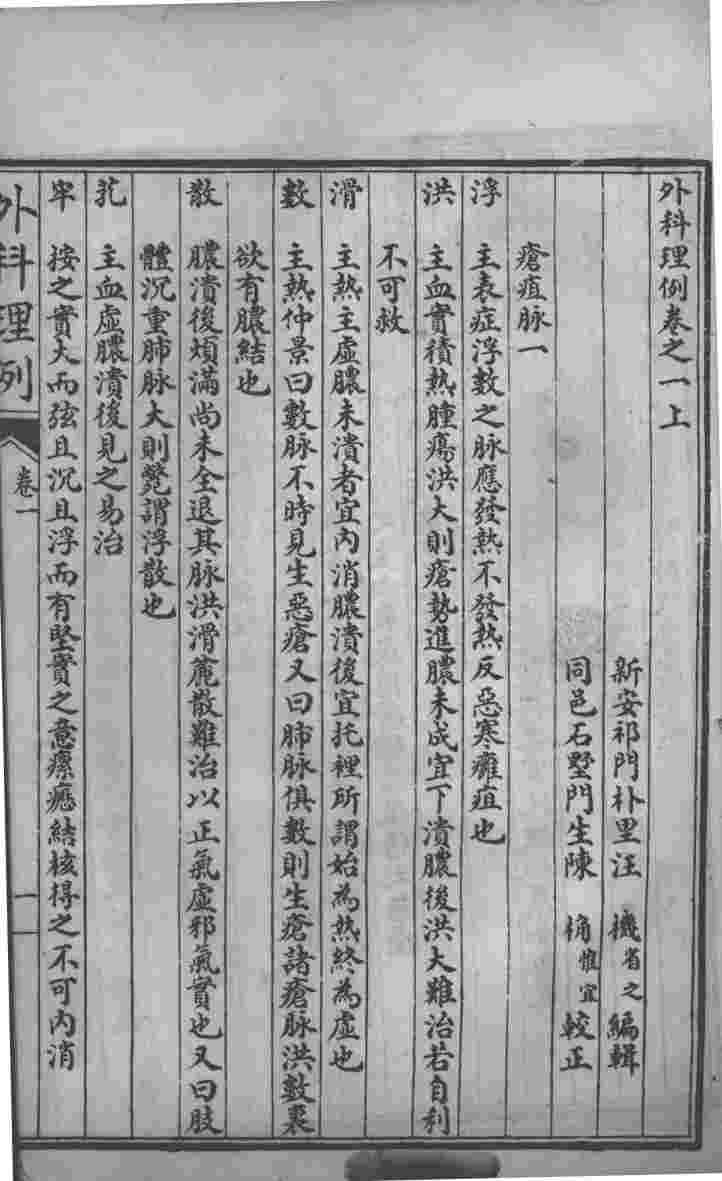 外科理例卷之一上
新安祁門朴里汪　機省之編輯
同邑石墅門生陳　桷惟宜較正
瘡疽脉一
浮　主表症浮數之脉應發熱不發熱反惡寒癰疽也
洪　主血實積熱腫瘍洪大則瘡勢進膿未成宜下潰膿後洪大難治若自利
不可救
滑　主熱主虛膿未潰者宜內消膿潰後宜托裡所謂始為熱終為虛也
數　主熱仲景曰數脉不時見生惡瘡又曰肺脉俱數則生瘡諸瘡脉洪數裹
欲有膿結也
散　膿潰後煩滿尚未全退其脉洪滑麄散難治以正氣虛邪氣實也又曰肢
體沉重肺脉大則斃謂浮散也
芤　主血虛膿潰後見之易治
牢　按之實大而弦且沉且浮而有堅實之意瘰癧結核得之不可內消
外科理例
卷一
一